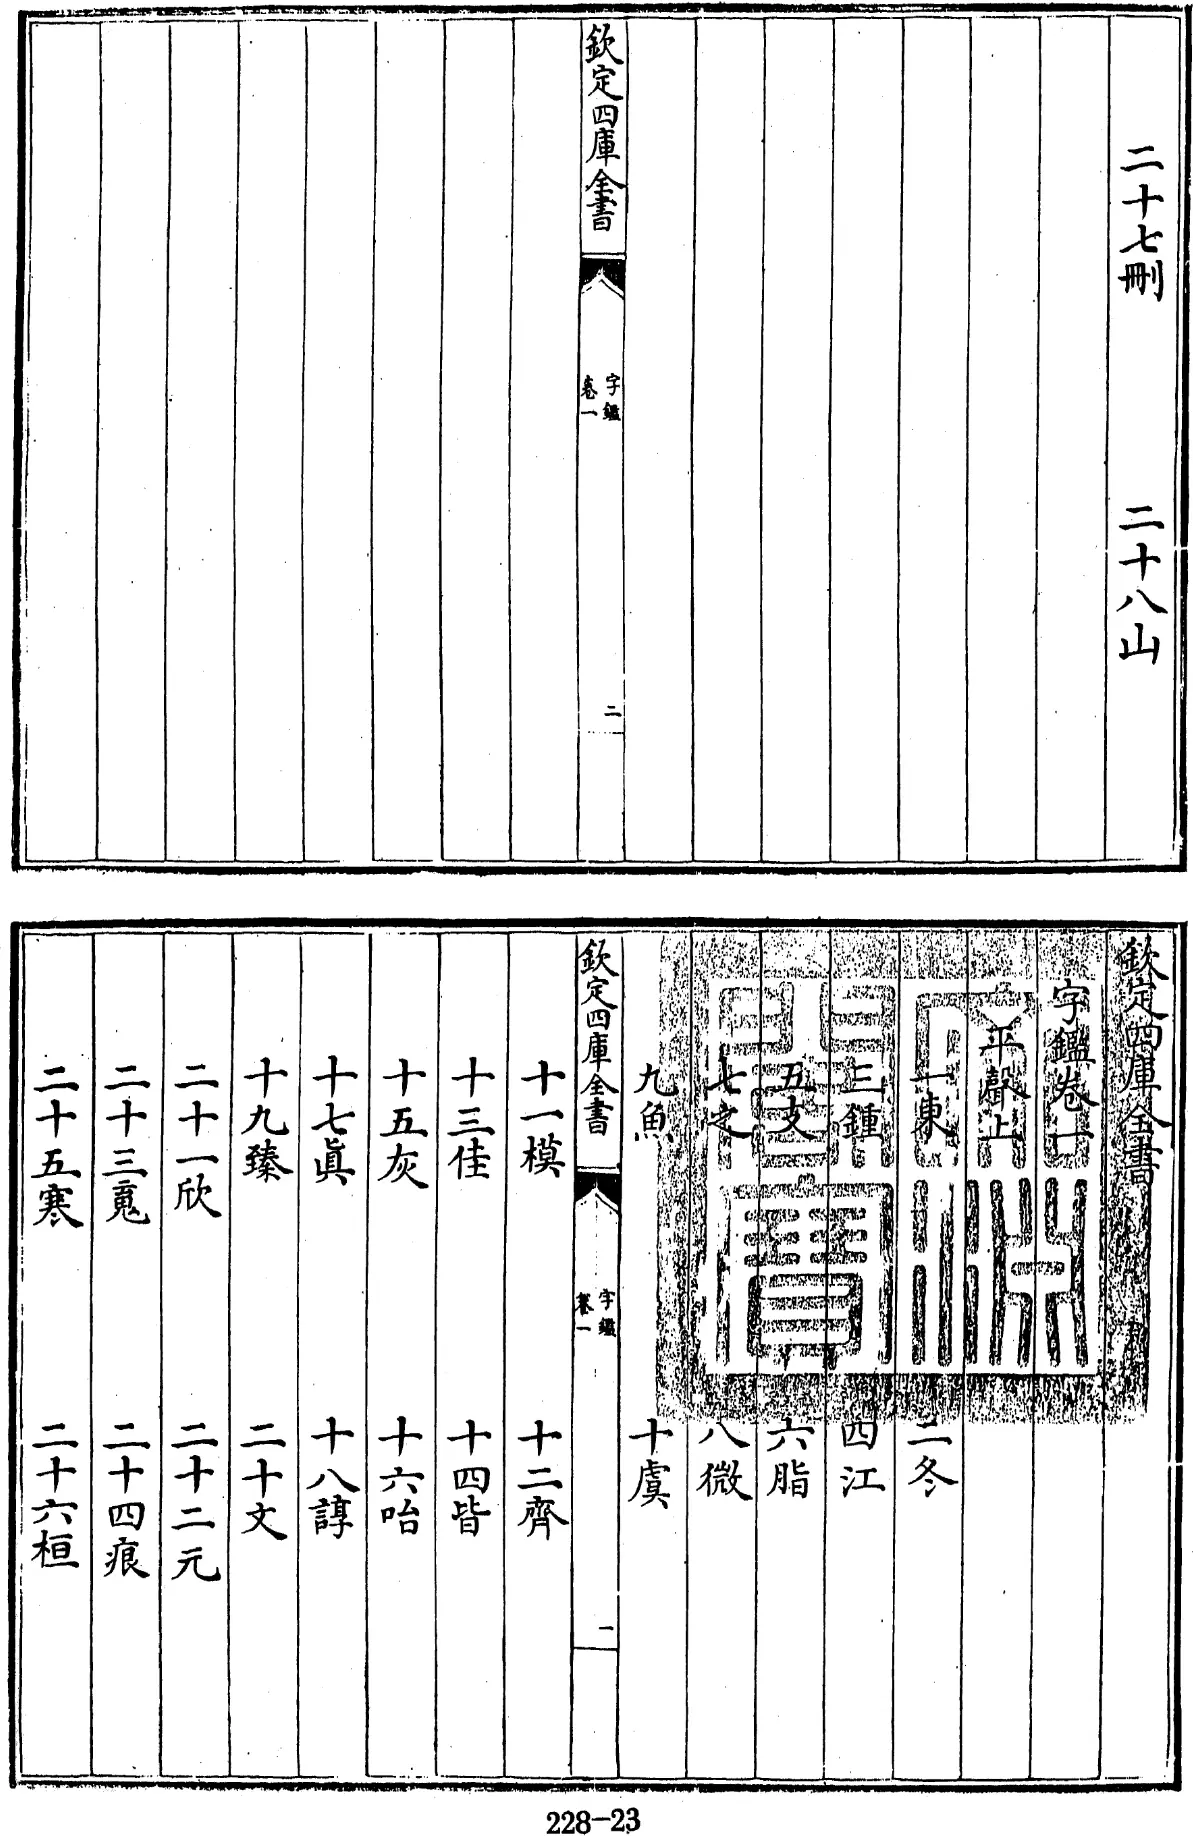 欽定四庫全書
字鑑卷一
平聲上
一東 二冬
三鍾 四江
五支 六脂
七之 八微
九魚 十虞
欽定四庫全書 字鑑 卷一 一
十一模 十二齊
十三佳 十四皆
十五灰 十六咍
十七眞 十八諄
十九臻 二十文
二十一欣 二十二元
二十三䰟 二十四痕
二十五寒 二十六桓
二十七刪 二十八山
欽定四庫全書 字鑑 卷一 二
228-23